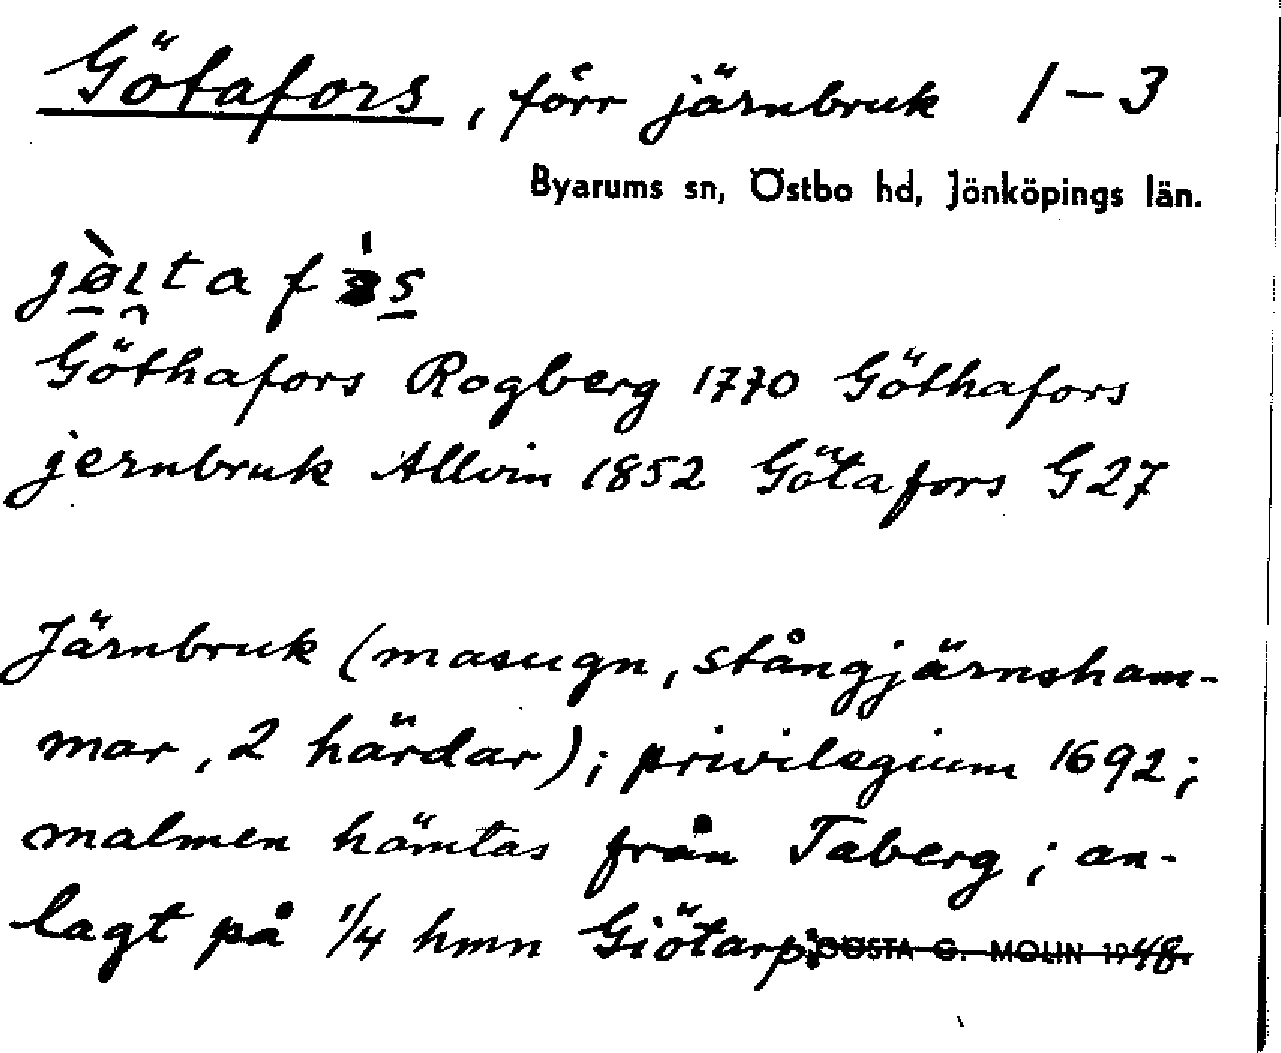 Götafors, förr järnbruk 1-3
Byarums sn, Östbo hd, Jönköpings län.
Göthafors Rogberg 1770 Göthafors
jernbruk Allvin 1852 Götafors G27
Järnbruk (masugn, stångjärnsham-
mar, 2 härdar); privilegium 1692;
malmen hämtas från Taberg; an-
lagt på 1/4 hmn Giötarp; GÖSTA G. MOLIN 1948.